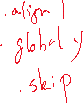 .align 1
.global y
.skip